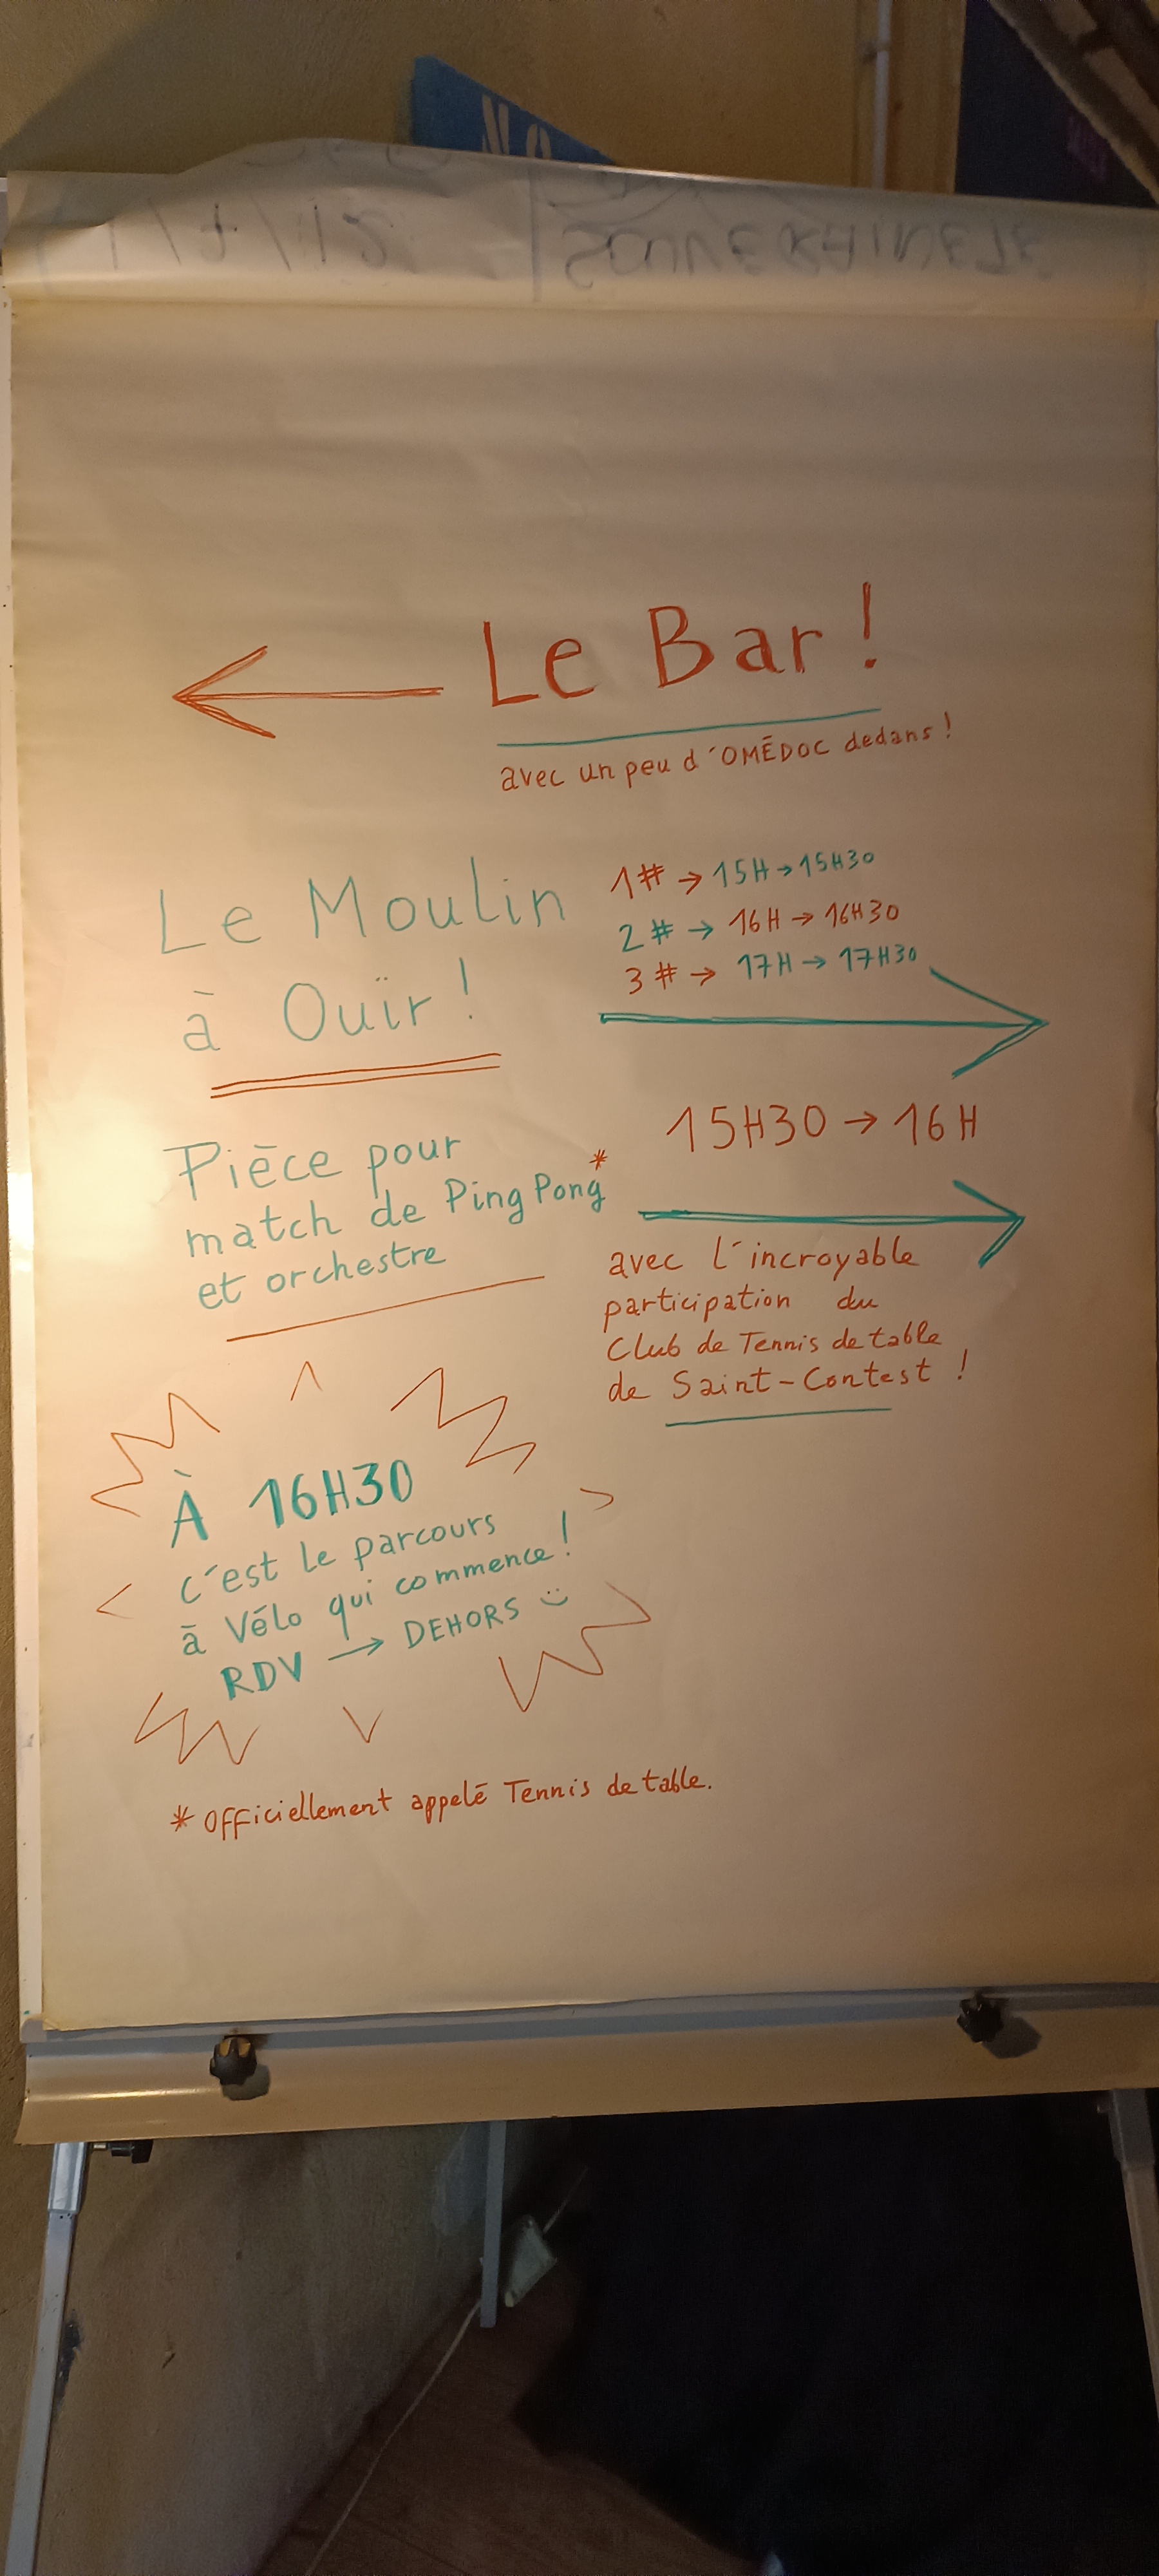 ← Le Bar !
avec un peu d'OMÉDOC dedans !
Le Moulin
à Ouïr !
1# → 15H → 15H30
2# → 16H → 16H30
3# → 17H → 17H30
Pièce pour
match de Ping Pong*
et orchestre
15H30 → 16H
avec l'incroyable
participation du
Club de Tennis de table
de Saint-Contest !
À 16H30
c'est le parcours
à Vélo qui commence !
RDV → DEHORS :)
* Officiellement appelé Tennis de table.